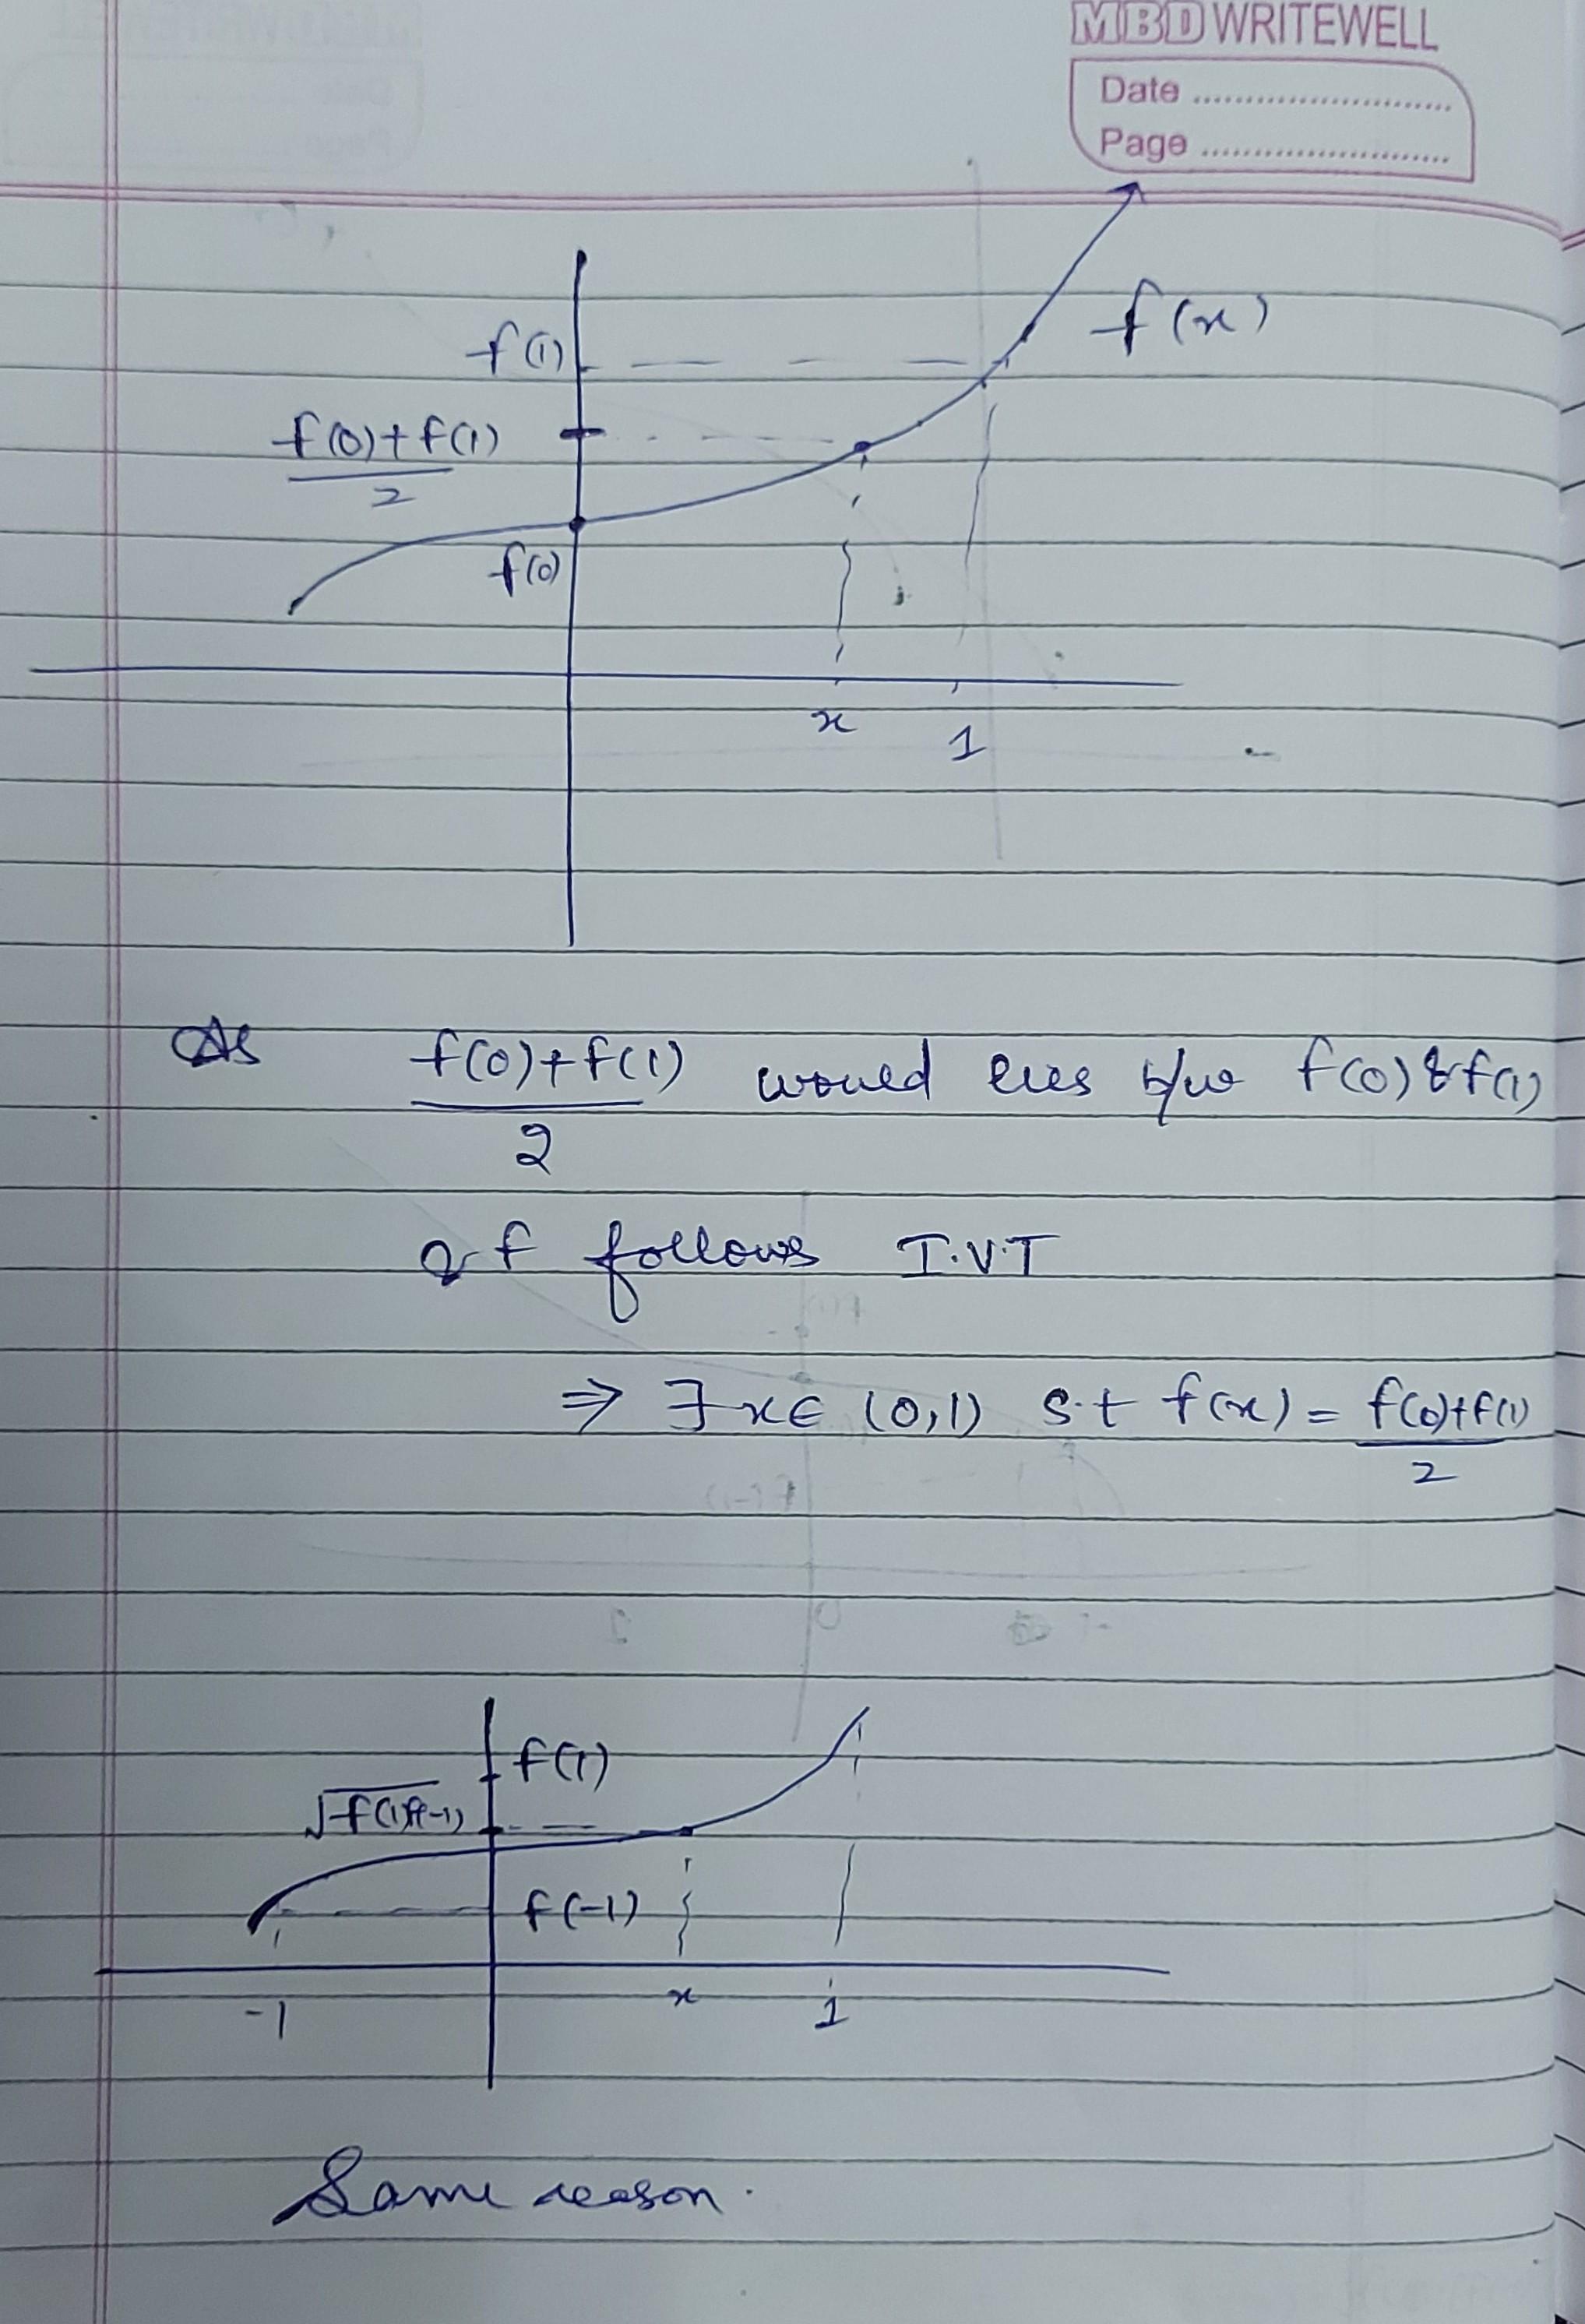 MBD WRITEWELL
Date
Page
f(x)
f(1)
f(0)+f(1)
2
f(0)
x
1
As f(0)+f(1) would lies b/w f(0) & f(1)
2
& f follows I.V.T
⇒ ∃ x∈ (0,1) s.t f(x) = f(0)+f(1)
2
f(1)
√f(1)f(-1)
f(-1)
-1
x
1
Same reason.